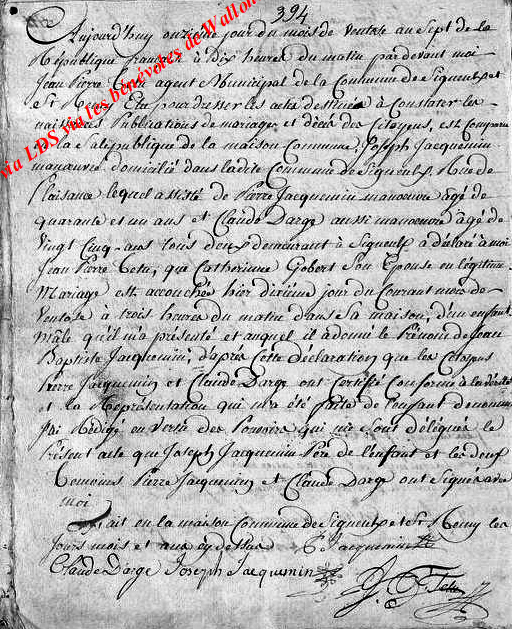 394
Aujourd'huy onzieme jour du mois de Ventose an Sept de la
République française à Dix heures du matin pardevant moi
Jean Pierre Tetu agent Municipal de la Commune de Signeulx et
St Remy Elu pour dresser les actes destinés à Constater les
naissances Publications de mariages et décès des Citoyens, est Comparu
la Sale publique de la maison Commune, Joseph Jacquemin
manoeuvre domicilié dans ladite Commune de Signeulx Rue de
Plaisance lequel assisté de Pierre Jacquemin manoeuvre âgé de
quarante et un ans et Claude Darge aussi manoeuvre âgé de
Vingt Cinq ans tous deux demeurant à Signeulx a déclaré à moi
Jean Pierre Tetu, que Catherinne Gobert Son Epouse en légitime
Mariage est accouchée hier dixième jour du Courant mois de
Ventose à trois heures du matin dans sa maison, d'un enfant
Mâle qu'il m'a présenté et auquel il a donné le Prénom de Jean
Baptiste Jacquemin, d'après Cette déclaration que les Citoyens
Pierre Jacquemin et Claude Darge ont Certifié Conforme à la vérité
et la Représentation qui m'a été faite de l'enfant dénommé
J'ai Rédigé en Vertu des Pouvoirs qui me Sont délégués le
Présent acte que Joseph Jacquemin Père de l'enfant et les deux
temoins Pierre Jacquemin et Claude Darge ont Signés avec
moi
Fait en la maison Commune de Signeulx et St Remy les
Jours mois et ans cy dessus P Jacquemin
Claude Darge Joseph Jacquemin
J. P. Tetu
via LDS via les bénévoles de Wallon